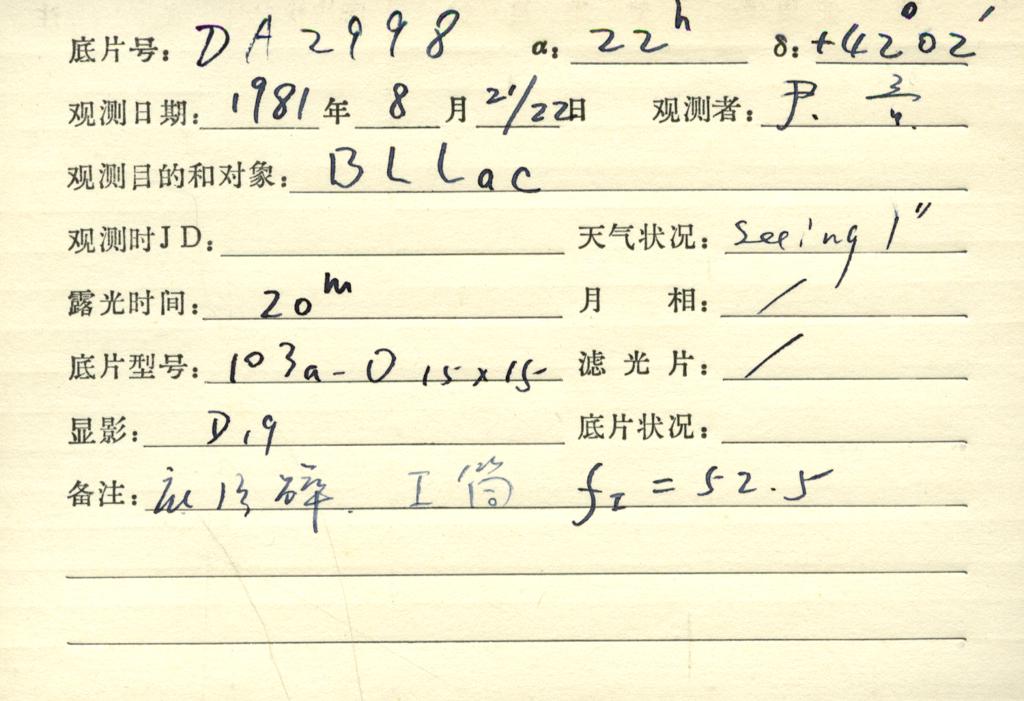 底片号: DA2998 α: 22ʰ δ: +42°02′
观测日期: 1981年 8月 21/22日 观测者: 尹.
观测目的和对象: BLLac
观测时JD: 天气状况: Seeing 1″
露光时间: 20ᵐ 月 相: /
底片型号: 103a-O 15×15 滤光片: /
显影: D19 底片状况:
备注: 底片碎. I筒 f_I = 52.5